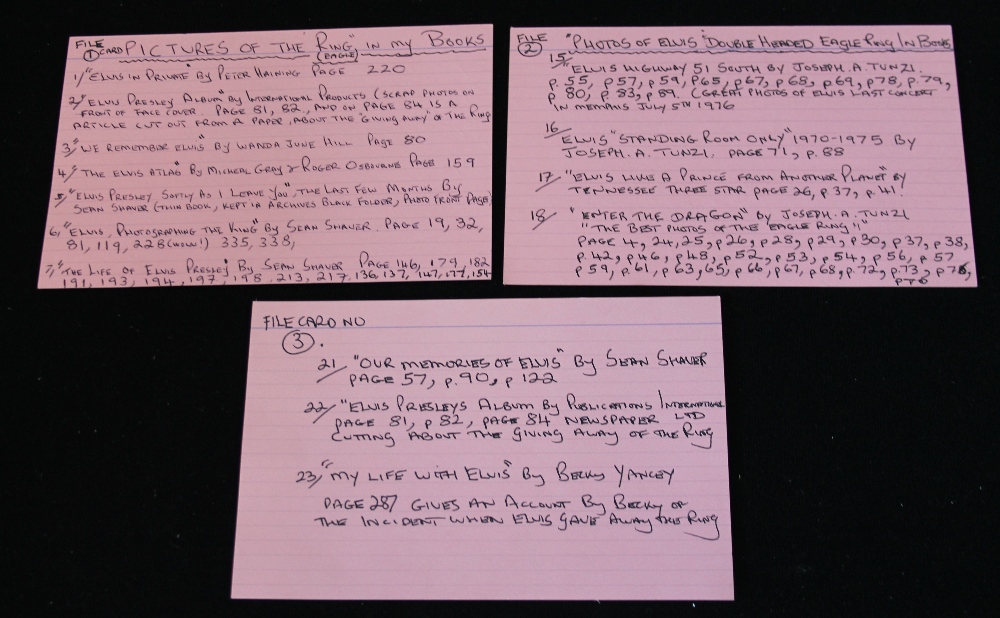 FILE CARD ① PICTURES OF THE "RING", IN MY BOOKS
(EAGLE)
1/ "ELVIS IN PRIVATE" BY PETER HAINING PAGE 220
2/ "ELVIS PRESLEY ALBUM" BY INTERNATIONAL PRODUCTS (SCRAP PHOTOS ON
FRONT OF FACE COVER. PAGE 81, 82, AND ON PAGE 84 IS A
ARTICLE CUT OUT FROM A PAPER, ABOUT THE "GIVING AWAY" OF THE RING
3/ "WE REMEMBER ELVIS" BY WANDA JUNE HILL PAGE 80
4/ "THE ELVIS ATLAS" BY MICHEAL GRAY & ROGER OSBOURNE PAGE 159
5/ "ELVIS PRESLEY SOFTLY AS I LEAVE YOU", THE LAST FEW MONTHS BY
SEAN SHAVER (THIN BOOK, KEPT IN ARCHIVES BLACK FOLDER, PHOTO FRONT PAGE)
6/ "ELVIS, PHOTOGRAPHING THE KING" BY SEAN SHAVER. PAGE 19, 32,
81, 119, 228 (WOW!) 335, 338,
7/ "THE LIFE OF ELVIS PRESLEY" BY SEAN SHAVER PAGE 146, 179, 182
191, 193, 194, 197, 198, 213, 217, 136, 137, 147, 177, 154
FILE ② "PHOTOS OF ELVIS "DOUBLE HEADED EAGLE RING" IN BOOKS
15/ "ELVIS HIGHWAY 51 SOUTH BY JOSEPH. A. TUNZI.
p. 55, p57, p59, p65, p67, p68, p69, p78, p.79,
p 80, p 83, p 89. (GREAT PHOTOS OF ELVIS LAST CONCERT
IN MEMPHIS JULY 5TH 1976
16/
ELVIS "STANDING ROOM ONLY" 1970-1975 BY
JOSEPH. A. TUNZI, PAGE 71, p. 88
17/ "ELVIS LIKE A PRINCE FROM ANOTHER PLANET" BY
TENNESSEE THREE STAR PAGE 26, p. 37, p. 41.
18/ "ENTER THE DRAGON" BY JOSEPH. A. TUNZI
"THE BEST PHOTOS OF THE "EAGLE RING"!"
PAGE 4, 24, 25, p26, p28, p29, p30, p37, p38,
p.42, p46, p48, p52, p53, p54, p56, p57
p59, p61, p63, 65, p66, p67, p68, p.72, p.73, p75,
p76
FILE CARD NO
③.
21/ "OUR MEMORIES OF ELVIS" BY SEAN SHAVER
PAGE 57, p. 90, p 122
22/ "ELVIS PRESLEYS ALBUM BY PUBLICATIONS INTERNATIONAL
PAGE 81, p 82, PAGE 84 NEWSPAPER LTD
CUTTING ABOUT THE GIVING AWAY OF THE RING
23/ "MY LIFE WITH ELVIS" BY BECKY YANCEY
PAGE 287 GIVES AN ACCOUNT BY BECKY OF
THE INCIDENT WHEN ELVIS GAVE AWAY THE RING